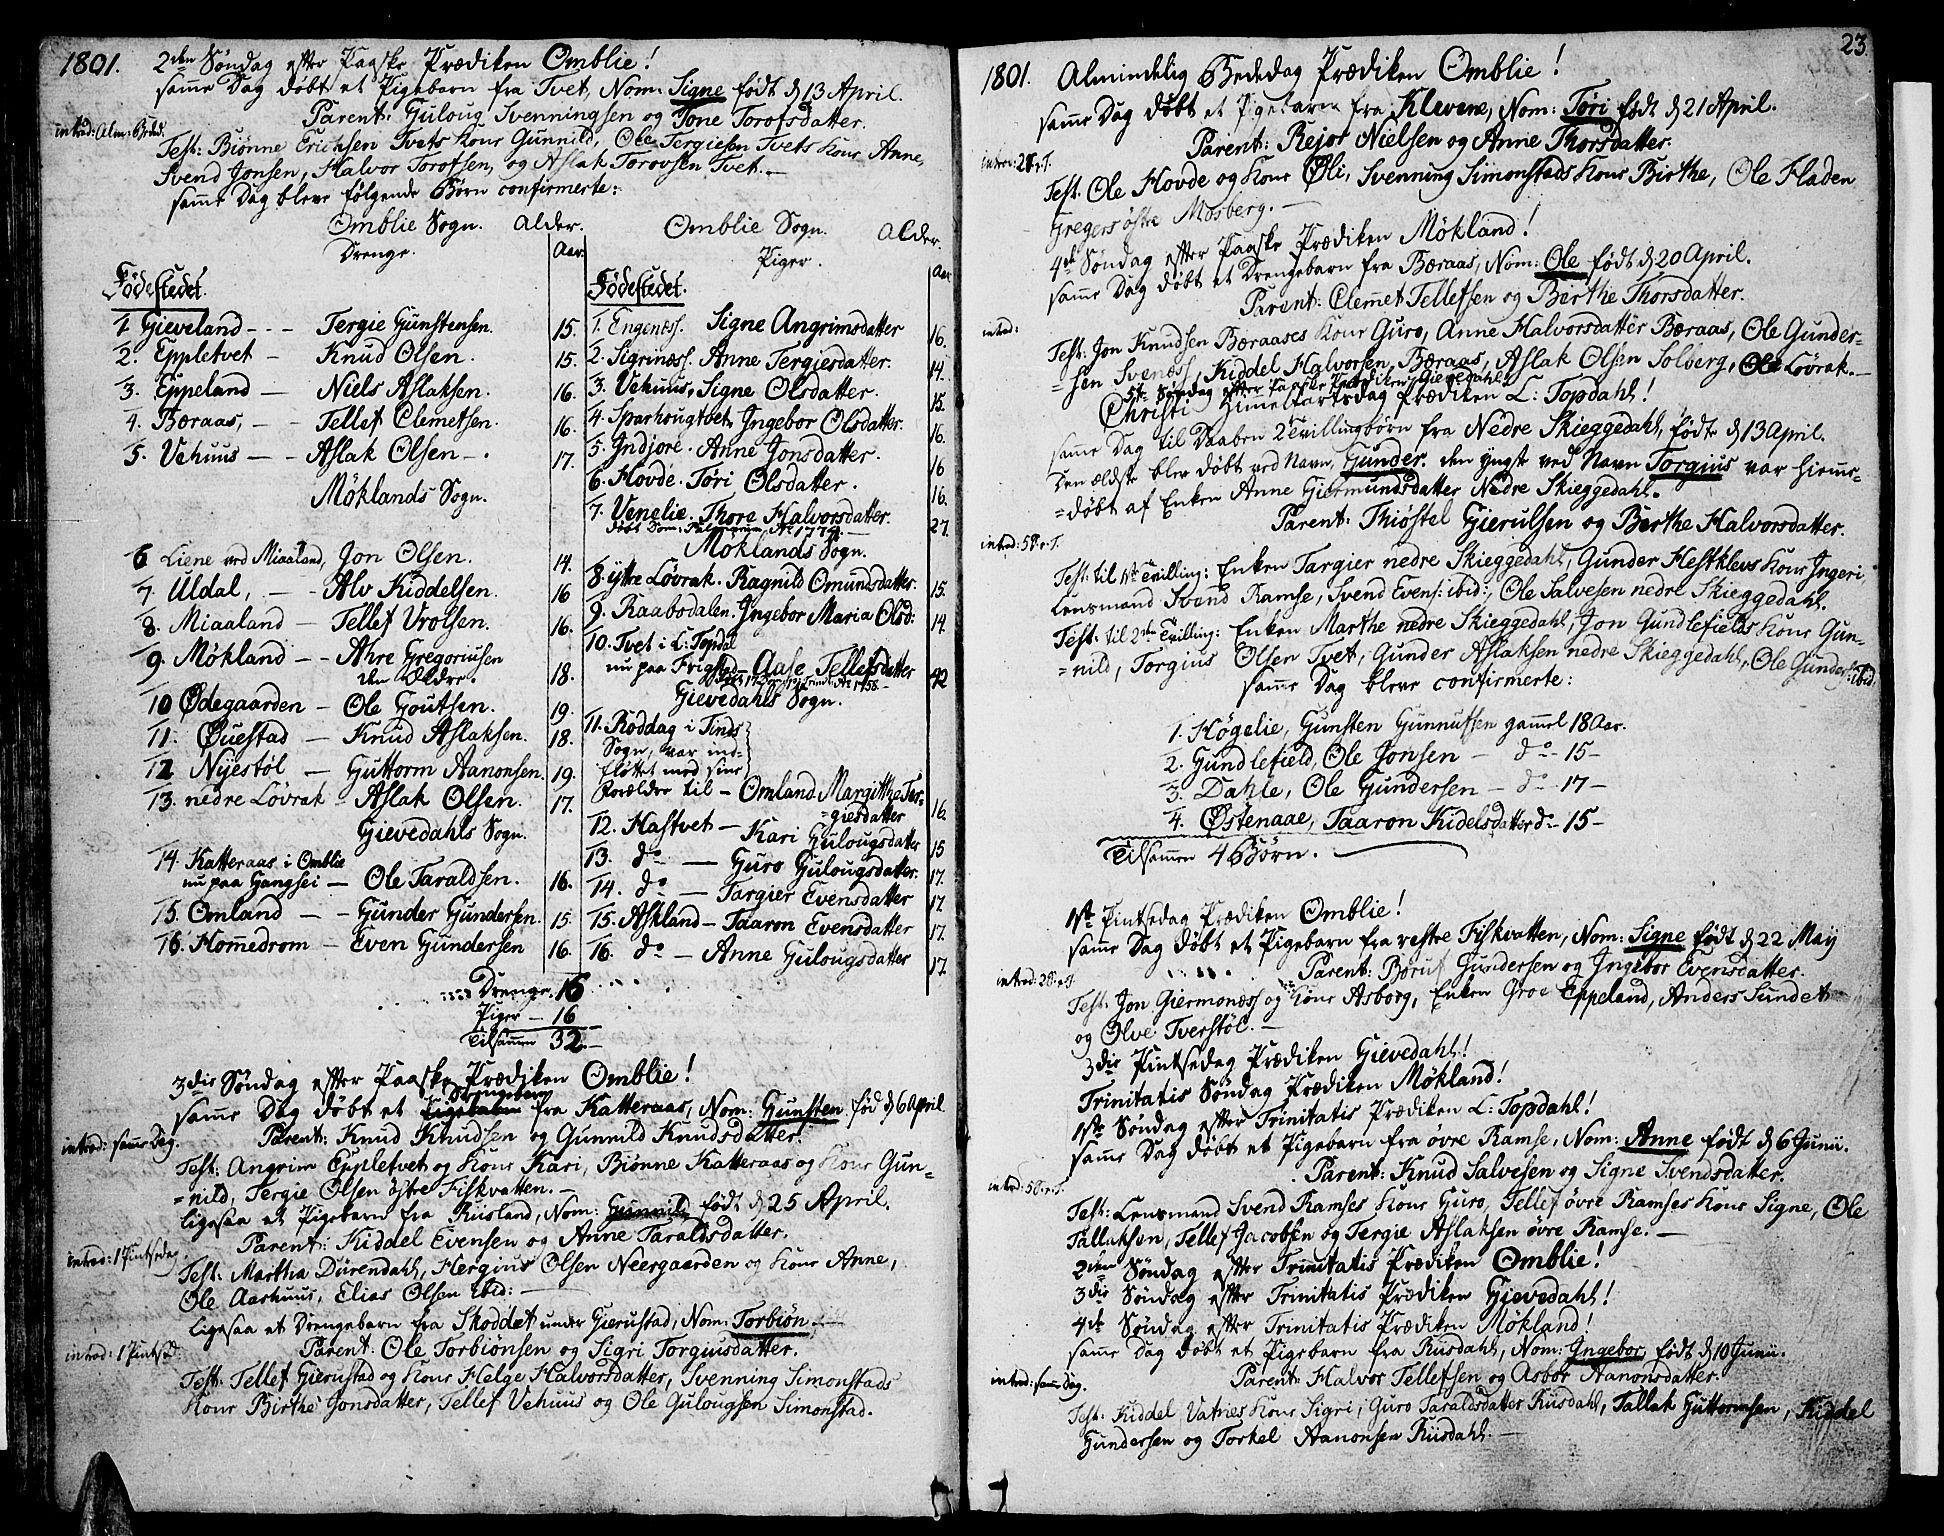 1801. 2den Søndag efter Paaske Prædiken Omblie!
samme Dag døbt et Pigebarn fra Tvet, Nom: Signe født d 13 April.
Parent: Guloug Svenningsen og Tone Torofsdatter.
introd: Alm: Beded:
Test: Biønne Erichsen Tvets Kone Gunnild, Ole Tergiesen Tvets Kone Anne,
Svend Jonsen, Halvor Torofsen, og Aslak Torovsen Tvet.—
samme Dag bleve følgende Børn confirmerte:
Omblie Sogn. Alder.
Drenge. Aar.
Fødestedet.
1. Gieveland - - - Tergie Gunstensen. 15.
2. Eppletvet - Knud Olsen. 15.
3. Eppeland - - Niels Aslaksen. 16.
4. Bæraas, - - Tellef Clemetsen. 16.
5. Vehuus - - Aslak Olsen -. 17.
Møklands Sogn.
6 Liene ved Miaaland, Jon Olsen. 14.
7. Uldal, - - Alv Kiddelsen. 16
8. Miaaland - Tellef Vrolsen. 16.
9. Møkland - - Ahre Gregoriusen
den Ældre. 18.
10 Ødegaarden - Ole Goutsen. 19.
11. Øuestad - Knud Aslaksen. 18.
12 Nyestøl - Guttorm Aanonsen. 19.
13. nedre Løvrak - Aslak Olsen. 17.
Gievedahls Sogn.
14. Katteraas i Omblie
nu paa Gangsei - Ole Taraldsen. 16.
15. Omland - - Gunder Gundersen. 15.
16. Hommedrom - Even Gundersen 16.
Omblie Sogn. Alder.
Piger. Aar
Fødestedet.
1. Engenæss. Signe Angrimsdatter 16.
2. Sigrinæss. Anne Tergiesdatter. 14.
3. Vehuus, Signe Olsdatter. 15.
4. Sparhougtvet, Ingebor Olsdatter. 16.
5. Indjore. Anne Jonsdatter. 16
6. Hovde. Tøri Olsdatter. 16.
7. Venelie. Thore Halvorsdatter. 27.
Møklands Sogn.
8 yttre Løvrak. Ragnild Omundsdatter. 15.
9. Raabodalen. Ingebor Maria Olsd: 14.
10. Tvet i L: Topdal
nu paa Frigstad - Aase Tellefsdatter 42
Gievedahls Sogn.
11. Roddag i Tinds
Sogn, var ind-
fløttet med sine
Forældre til - Omland. Margitthe Ter-
=giesdatter 16.
12. Hastvet - Kari Gulougsdatter 15
13. do - Guro Gulougsdatter. 17.
14. do - Targier Evensdatter 17.
15. Askland - Taaron Evensdatter 17.
16. do - Anne Gulougsdatter 17.
Drenge. 16
Piger - 16
Tilsammen 32.
3die Søndag efter Paaske Prædiken Omblie!
Drengebarn
samme Dag døbt et Pigebarn fra Katteraas, Nom: Gunsten fød d 6 April
introd: samme Dag. Parent: Knud Knudsen og Gunnild Knudsdatter.
Test: Angrim Eppletvet og Kone Kari, Biønne Katteraas og Kone Gun-
=nild, Tergie Olsen østre Fiskvatten.—
Ligesaa et Pigebarn fra Riisland, Nom: Gunnild født d 25 April.
Parent: Kiddel Evensen og Anne Taraldsdatter.
introd: 1 Pintsedag.
Test: Martha Dürendahl, Hergius Olsen Neergaarden og Kone Anne,
Ole Aashuus, Elias Olsen ibid: —
Ligesaa et Drengebarn fra Skoddet under Gierustad, Nom: Torbiøn.—
introd: 1 Pintsed: Parent: Ole Torbiønsen og Sigri Torguisdatter.
Test: Tellef Gierustad og Kone Helge Halvorsdatter, Svenning Simonstads
Kone Birthe Jonsdatter, Tellef Vehuus og Ole Gulougsen Simonstad.
23
1801. Almindelig Bededag Prædiken Omblie!
samme Dag døbt et Pigebarn fra Klevene, Nom: Tøri født d 21 April.
Parent: Rejor Nielsen og Anne Thorsdatter.
Test: Ole Hovde og Kone Øli, Svenning Simonstads Kone Birthe, Ole Fladen
Gregers østre Mosberg.—
4de Søndag efter Paaske Prædiken Møkland!
samme Dag døbt et Drengebarn fra Bæraas, Nom: Ole født d 20 April.
Parent: Clemet Tellefsen og Berthe Thorsdatter.
introd:
Test: Jon Knudsen Bæraases Kone Guro, Anne Halvorsdatter Bæraas, Ole Gunder-
=sen Svenæss, Kiddel Halvorsen Bæraas, Aslak Olsen Solberg, Ole Løvrak.—
5te Søndag efter Paaske Prædiken Gievedahl
Christi Himelfartsdag Prædiken L: Topdahl!
samme Dag til Daaben 2 Tvillingbørn fra Nedre Skieggedahl, født d 13 April.
Den ældste blev døbt ved Navn, Gunder. den yngste ved Navn Torgius var hiemme-
=døbt af Enken Anne Giermundsdatter Nedre Skieggedahl.
Parent: Thiøstel Gierulsen og Berthe Halvorsdatter.
Test: til 1ste Tvilling: Enken Targier nedre Skieggedahl, Gunder Hestklevs Kone Ingeri,
Lensmand Svend Ramse, Svend Evens: ibid:, Ole Salvesen nedre Skieggedahl.
Test: til 2den Tvilling: Enken Marthe nedre Skieggedahl, Jon Gundlefields Kone Gun-
=nild, Torgius Olsen Tvet, Gunder Aslaksen nedre Skieggedahl, Ole Gunders: ibid:
samme Dag bleve confirmerte:
1. Høgelie, Gunsten Gunnufsen gammel 18 Aar.
2. Gundlefield, Ole Jonsen - do - 15 -
3. Dahle, Ole Gundersen - do - 17 -
4. Østenaae, Taaron Kidelsdatter do - 15 -
Tilsammen 4 Børn.
1ste Pintsedag Prædiken Omblie!
samme Dag døbt et Pigebarn fra vestre Fiskvatten, Nom: Signe født d 22 May
Parent: Boruf Gundersen og Ingebor Evensdatter.
Test: Jon Giermonæss og Kone Asborg, Enken Groe Eppeland, Anders Sundet
og Olve Tverstøl.—
3die Pintsedag Prædiken Gievedahl!
Trinitatis Søndag Prædiken Møkland!
1ste Søndag efter Trinitatis Prædiken L: Topdahl!
samme Dag døbt et Pigebarn fra øvre Ramse, Nom: Anne født d 6 Junii.
Parent: Knud Salvesen og Signe Svendsdatter.
Test: Lensmand Svend Ramses Kone Guro, Tellef øvre Ramses Kone Signe, Ole
Tallaksen, Tellef Jacobsen og Tergie Aslaksen øvre Ramse.—
2den Søndag efter Trinitatis Prædiken Omblie!
3die Søndag efter Trinitatis Prædiken Gievedahl!
4de Søndag efter Trinitatis Prædiken Møkland!
samme Dag døbt et Pigebarn fra Riisdahl, Nom: Ingebor født d 10 Junii.
introd: samme Dag. Parent: Halvor Tellefsen og Asbor Aanonsdatter.
Test: Kiddel Vatnes Kone Sigri, Guro Taraldsdatter Riisdahl, Tallak Guttormsen, Kiddel
Gundersen og Torkel Aanonsen Riisdahl.—